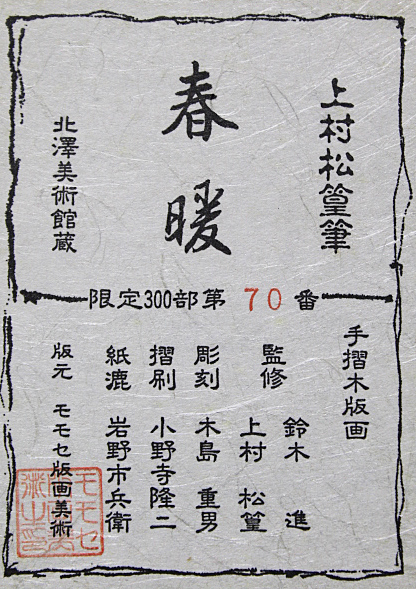 上村松篁筆
春暖
北澤美術館蔵
限定300部第 70 番
手摺木版画
監修 鈴木 進
上村 松篁
彫刻 木島 重男
摺刷 小野寺隆二
紙漉 岩野市兵衛
版元 モモセ版画美術